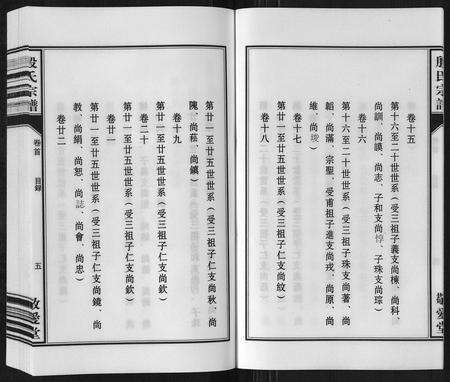 殷氏宗譜
敬愛堂
卷十五
第十六至二十世世系（受三祖子義支尚棟、尚科、
尚訓、尚謨、尚志、子和支尚悙、子珠支尚琮）
卷十六
第十六至二十世世系（受三祖子珠支尚著、尚
韜、尚滿、宗聖、受甫祖子進支尚戎、尚原、尚
維、尚琁）
卷十七
第廿一至廿五世世系（受三祖子仁支尚紋）
卷十八
第廿一至廿五世世系（受三祖子仁支尚秋、尚
隗、尚蒞、尚鎮）
卷十九
第廿一至廿五世世系（受三祖子仁支尚欽）
卷二十
第廿一至廿五世世系（受三祖子仁支尚欽）
卷廿一
第廿一至廿五世世系（受三祖子仁支尚鏡、尚
教、尚絹、尚恕、尚誌、尚會、尚忠）
卷廿二
殷氏宗譜
卷首
目録
五
敬愛堂